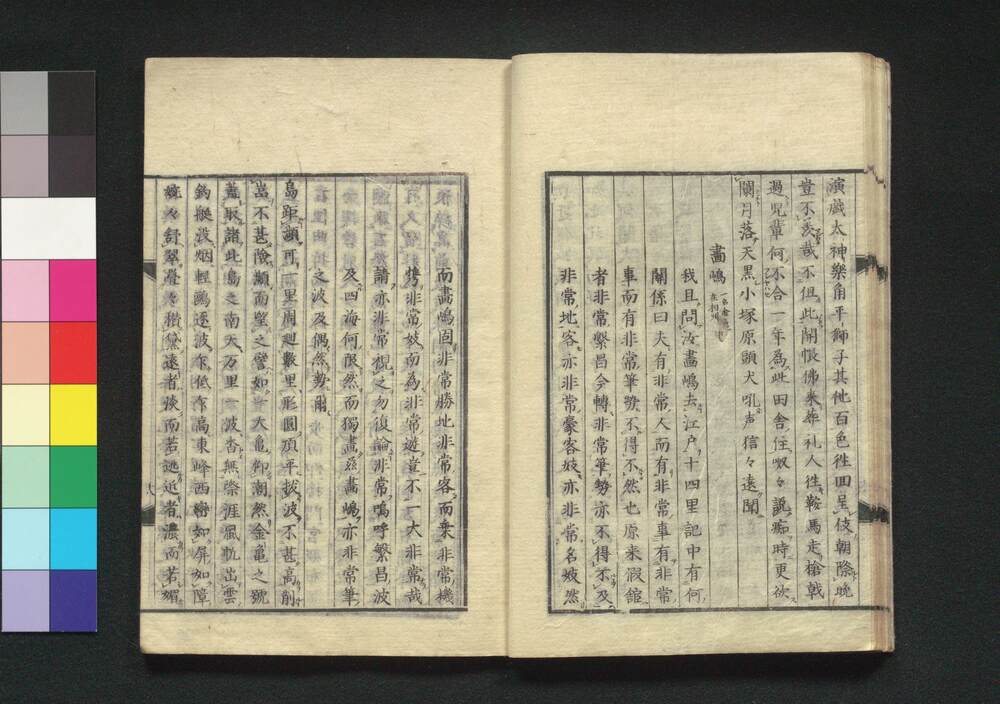 演戯太神樂角平獅子其他百色徃回呈伎朝際晩
豈不羨哉不但此開帳佛来葬礼人徃鞍馬走槍戟
過児輩何不合一年為此田舎住呶々説痴時更欲
闌月落天黒小塚原頭犬吼声信々遠聞
畵嶋
我且問汝畵嶋去江戸十四里記中有何
關係曰夫有非常人而有非常事有非常
事而有非常筆勢不得不然也原来假館
者非常繁昌今轉非常筆勢亦不得不及
非常地客亦非常豪客妓亦非常名妓然
而畵嶋固非常勝地非常客而乗非常機
携非常妓而為非常遊豈不一大非常哉
請亦非常視之勿復論非常嗚呼繁昌波
及四海何限然而獨畵茲畵嶋亦非常筆
之波及偶然勢爾
島距瀕可一里周廻數里形圓頂平拔波不甚高削
岩不甚險瀕而望之譬如一大亀仰潮然金亀之號
蓋取諸此島之南天万里一波杳無際涯風帆出雲
釣艇沒烟軽鷗逐波乍低乍高東峰西巒如屏如障
蜿々舒翠疊々攅黛遠者痰而若逃近者濃而若媚